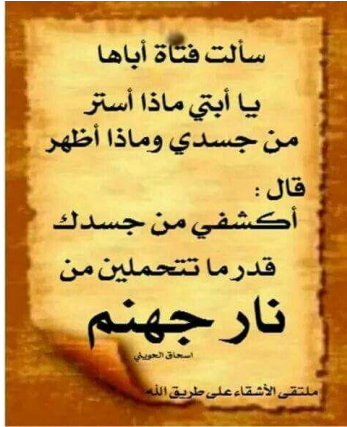 سألت فتاة أباها
يا أبتي ماذا أستر
من جسدي وماذا أظهر
قال :
أكشفي من جسدك
قدر ما تتحملين من
نار جهنم
اسحاق الحويني
ملتقى الأشقاء على طريق الله